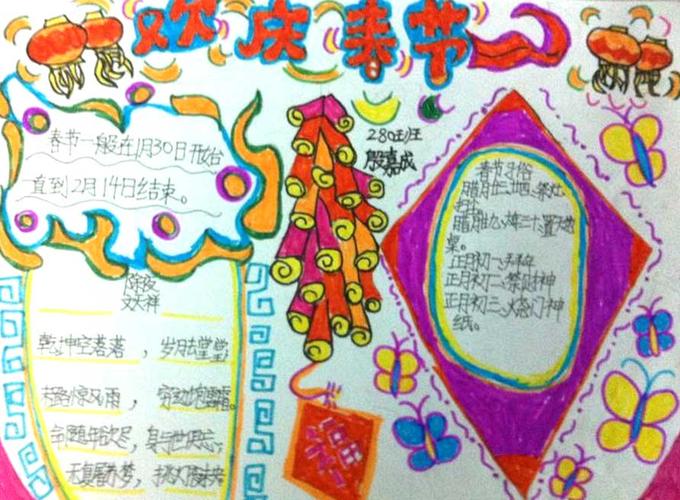 欢庆春节
春节一般在1月30日开始
直到2月14日结束。
280班
殷嘉成
除夜
文天祥
乾坤空落落,岁月去堂堂;
末路惊风雨,穷边饱雪霜。
命随年欲尽,身与世俱忘;
无复屠苏梦,挑灯夜未央
春节习俗
腊月廿三、廿四、祭灶、
扫尘
桌。
正月初一、拜年
正月初二、祭财神
正月初三、烧门神
纸。